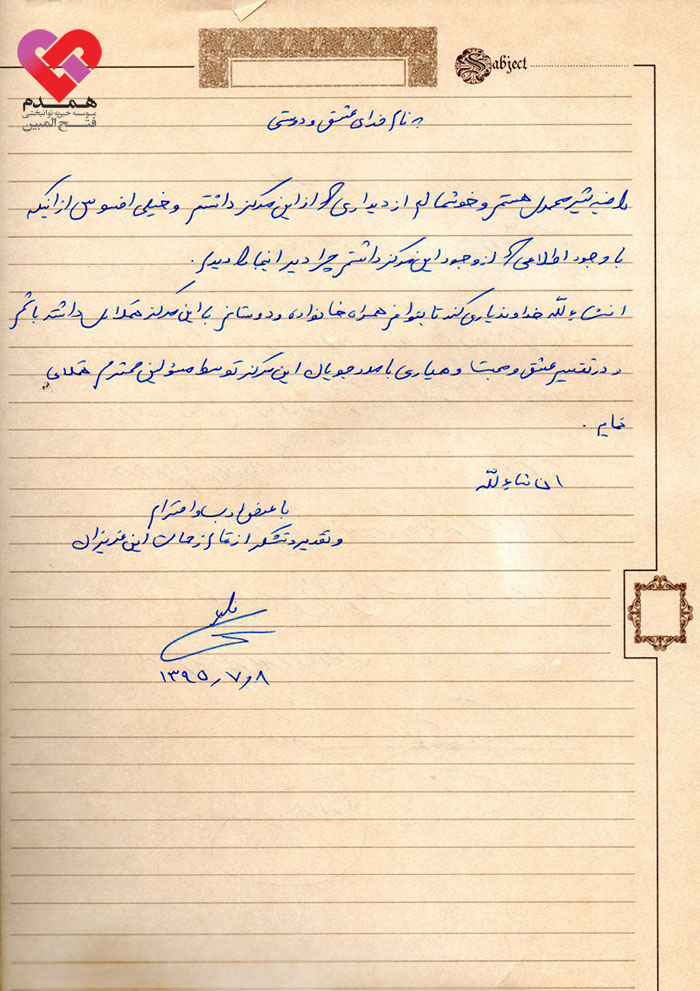 همدم
موسسه خیریه توانبخشی
فتح المبین
Sabject
به نام خدای عشق و دوستی
هستم و خوشحالم از دیداری که از این مرکز داشتم و خیلی افسوس از اینکه
با وجود اطلاعی که از وجود این مرکز داشتم چرا دیر اینجا را دیدم.
انشاءالله خداوند یاری کند تا بتوانم همراه خانواده و دوستانم با این مرکز همکاری داشته باشم
و در تقسیم عشق و محبت و همیاری با مددجویان این مرکز توسط مسئولین محترم همکاری
نمایم.
ان شاءالله
با عرض ادب و احترام
و تقدیر و تشکر از تمام زحمات این عزیزان
۱۳۹۵٫۷٫۸